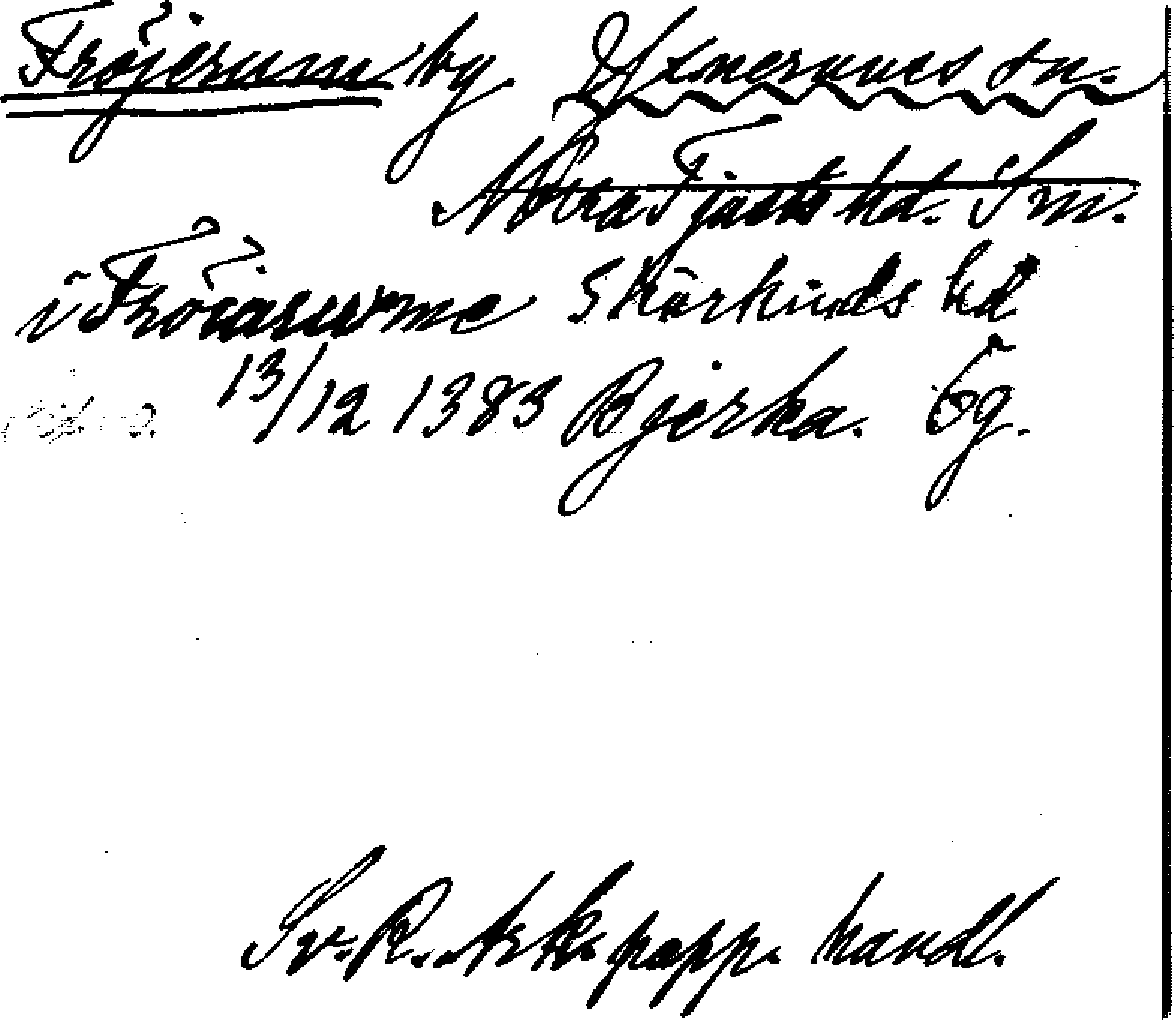 Fröjerum by Yxnerums sn.
Norra Tjusts hd. Sm.
i Fröiarume Skärkinds hd
13/12 1383 Bjerka. Ög.
Sv. R. Ark. papp. handl.